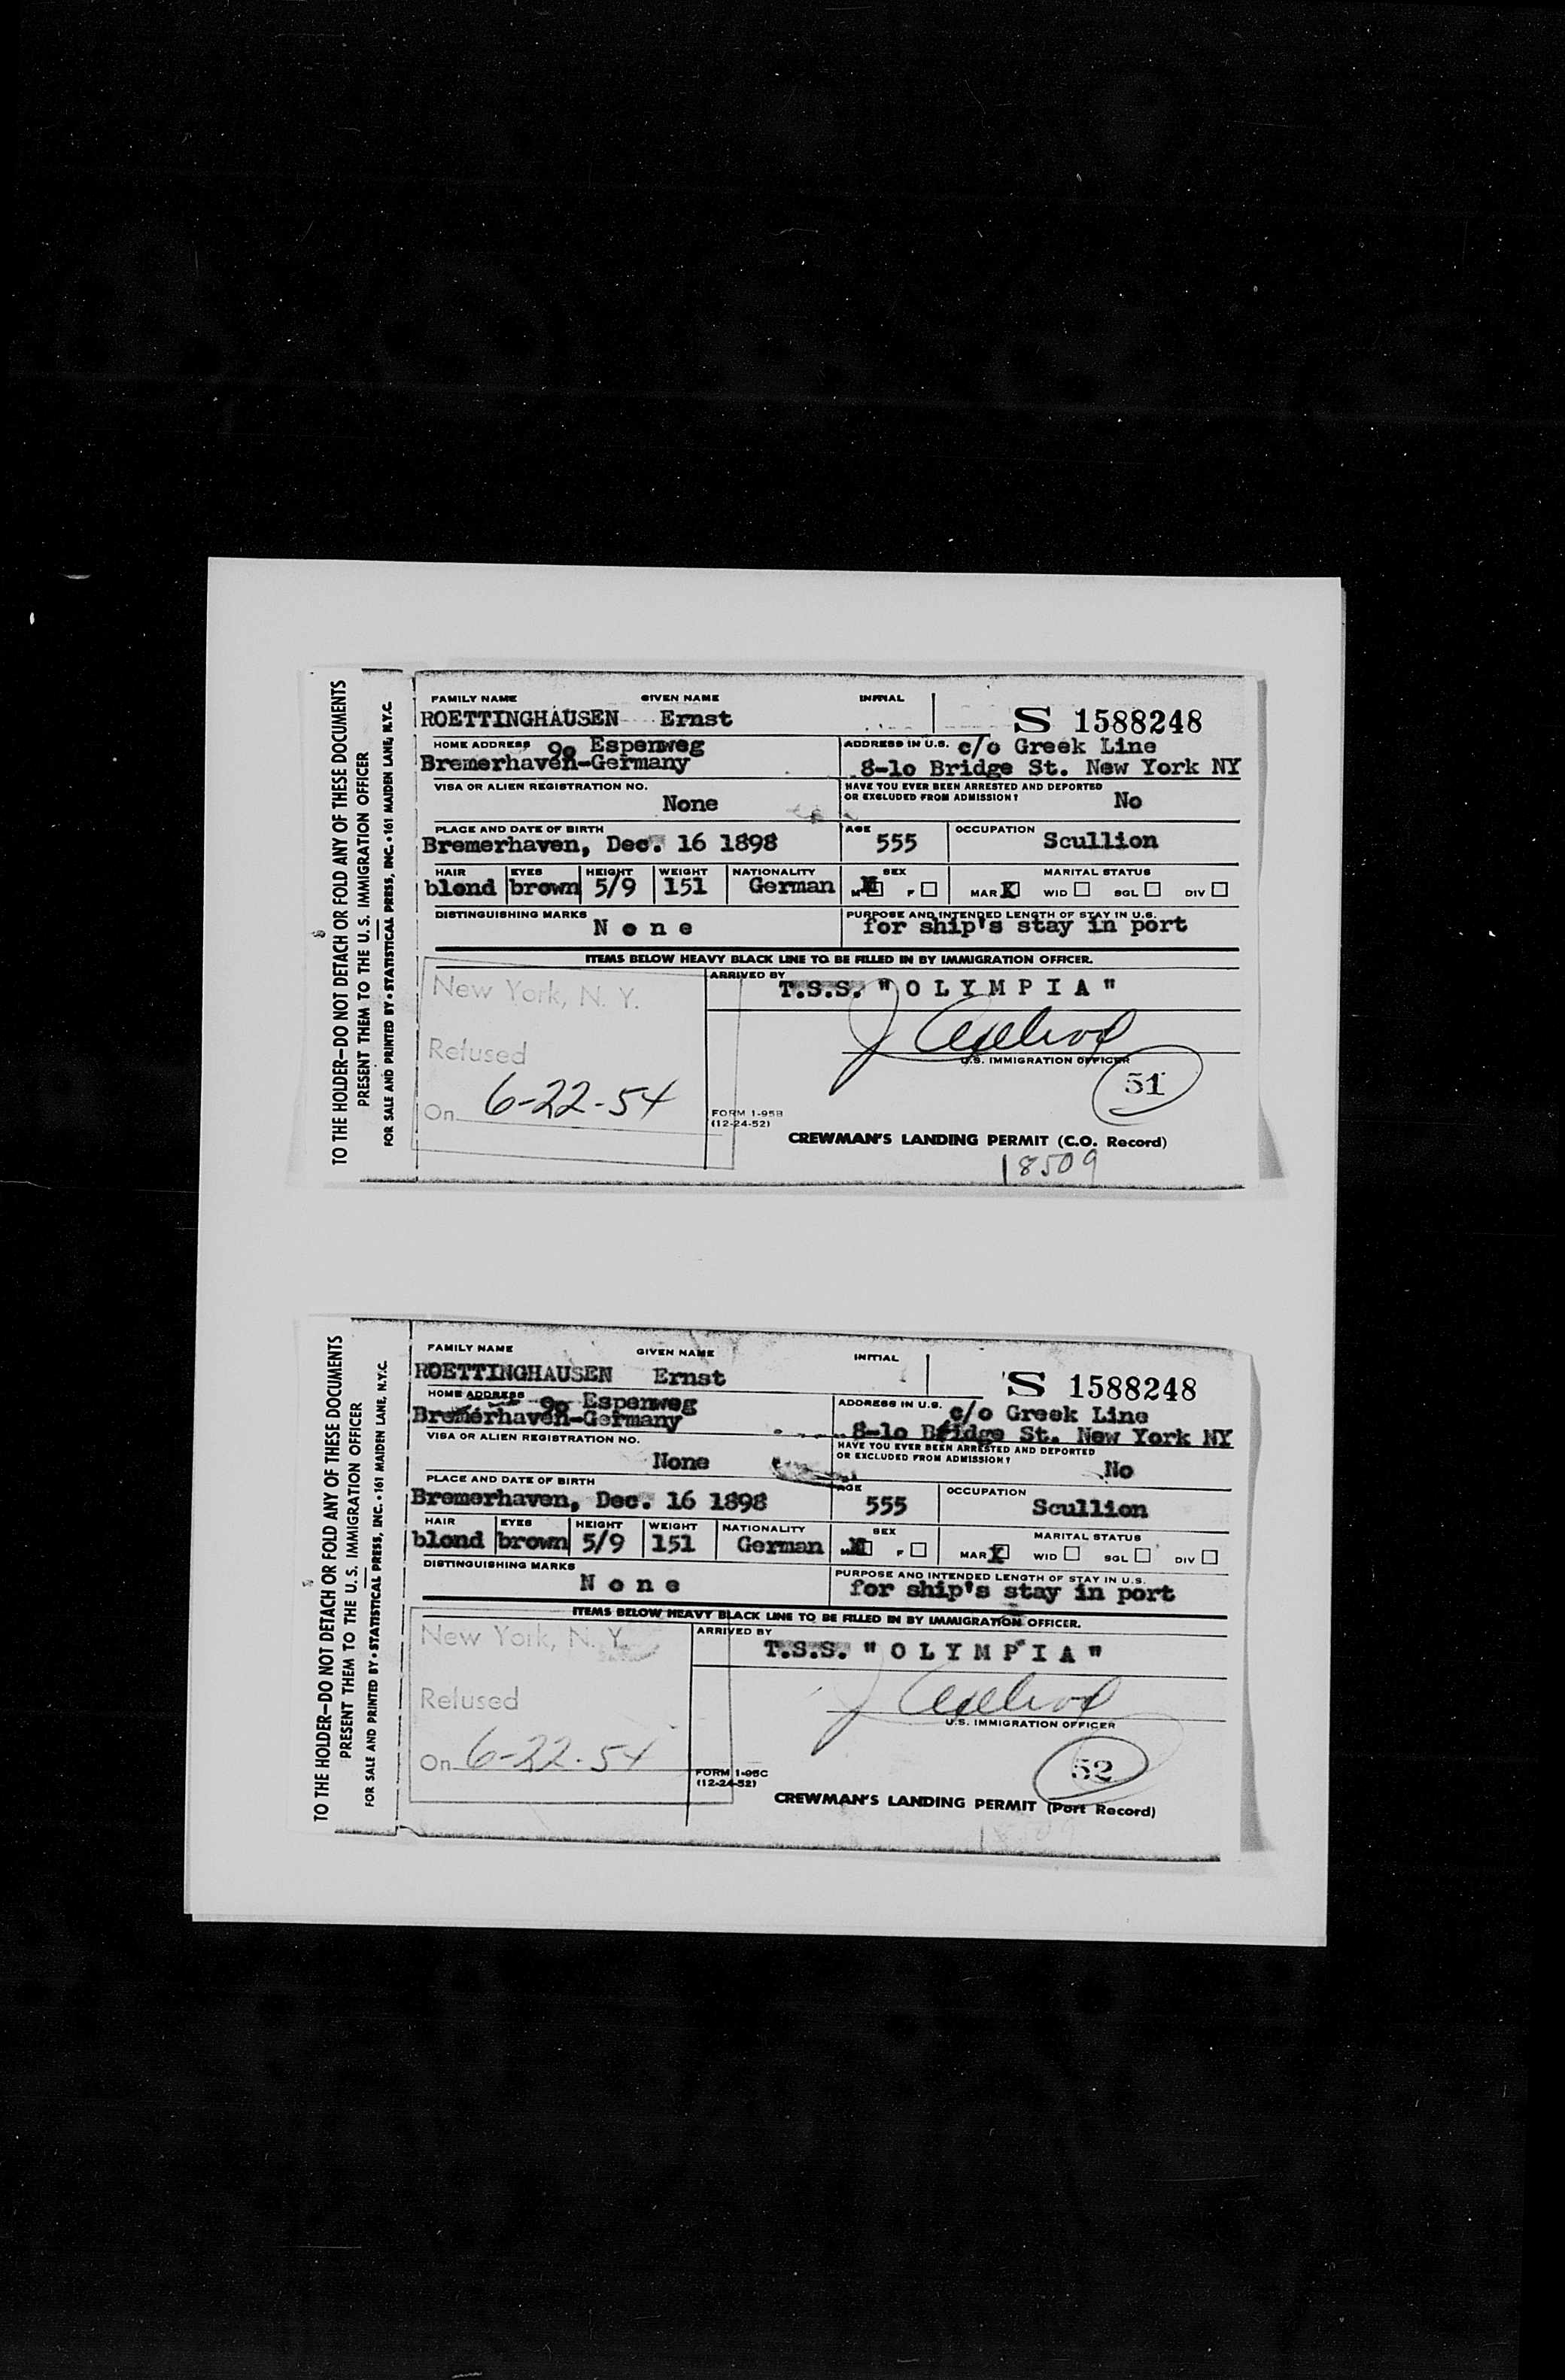 TO THE HOLDER—DO NOT DETACH OR FOLD ANY OF THESE DOCUMENTS
PRESENT THEM TO THE U.S. IMMIGRATION OFFICER
FOR SALE AND PRINTED BY • STATISTICAL PRESS, INC. • 161 MAIDEN LANE, N.Y.C.
FAMILY NAME GIVEN NAME INITIAL
ROETTINGHAUSEN Ernst S 1588248
HOME ADDRESS 9o Espenweg ADDRESS IN U.S. c/o Greek Line
Bremerhaven-Germany 8-lo Bridge St. New York NY
VISA OR ALIEN REGISTRATION NO. HAVE YOU EVER BEEN ARRESTED AND DEPORTED
None OR EXCLUDED FROM ADMISSION? No
PLACE AND DATE OF BIRTH AGE OCCUPATION
Bremerhaven, Dec. 16 1898 555 Scullion
HAIR EYES HEIGHT WEIGHT NATIONALITY SEX MARITAL STATUS
blond brown 5/9 151 German M F MAR X WID SGL DIV
DISTINGUISHING MARKS PURPOSE AND INTENDED LENGTH OF STAY IN U.S.
None for ship's stay in port
ITEMS BELOW HEAVY BLACK LINE TO BE FILLED IN BY IMMIGRATION OFFICER.
New York, N. Y. ARRIVED BY T.S.S. "OLYMPIA"
Refused U.S. IMMIGRATION OFFICER
51
On 6-22-54 FORM I-95B
(12-24-52)
CREWMAN'S LANDING PERMIT (C.O. Record)
18509
TO THE HOLDER—DO NOT DETACH OR FOLD ANY OF THESE DOCUMENTS
PRESENT THEM TO THE U.S. IMMIGRATION OFFICER
FOR SALE AND PRINTED BY • STATISTICAL PRESS, INC. • 161 MAIDEN LANE, N.Y.C.
FAMILY NAME GIVEN NAME INITIAL
ROETTINGHAUSEN Ernst S 1588248
HOME ADDRESS 9o Espenweg ADDRESS IN U.S. c/o Greek Line
Bremerhaven-Germany 8-lo Bridge St. New York NY
VISA OR ALIEN REGISTRATION NO. HAVE YOU EVER BEEN ARRESTED AND DEPORTED
None OR EXCLUDED FROM ADMISSION? No
PLACE AND DATE OF BIRTH AGE OCCUPATION
Bremerhaven, Dec. 16 1898 555 Scullion
HAIR EYES HEIGHT WEIGHT NATIONALITY SEX MARITAL STATUS
blond brown 5/9 151 German M F MAR X WID SGL DIV
DISTINGUISHING MARKS PURPOSE AND INTENDED LENGTH OF STAY IN U.S.
None for ship's stay in port
ITEMS BELOW HEAVY BLACK LINE TO BE FILLED IN BY IMMIGRATION OFFICER.
New York, N. Y. ARRIVED BY T.S.S. "OLYMPIA"
Refused U.S. IMMIGRATION OFFICER
52
On 6-22-54 FORM I-95C
(12-24-52)
CREWMAN'S LANDING PERMIT (Port Record)